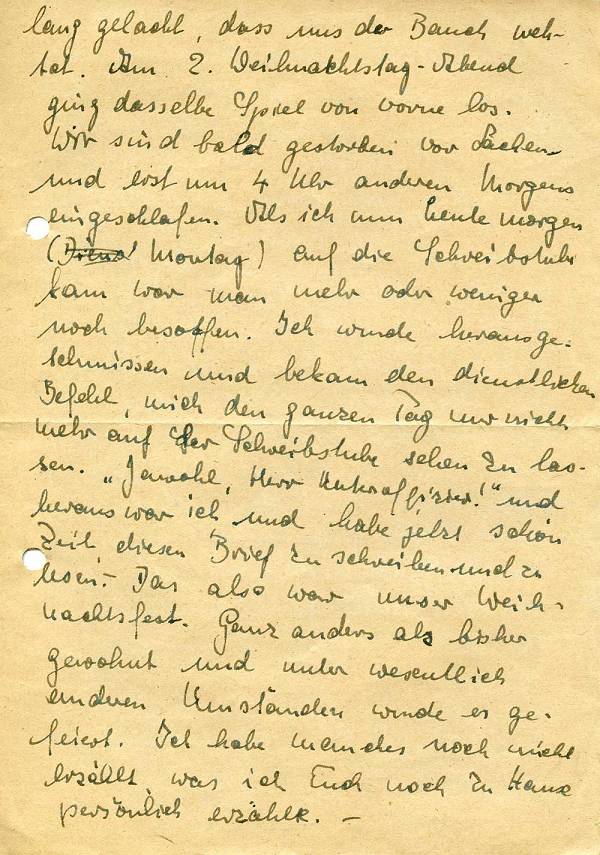 lang gelacht, dass uns der Bauch weh-
tat. Am 2. Weihnachtstag-Abend
ging dasselbe Spiel von vorne los.
Wir sind bald gestorben vor Lachen
und erst um 4 Uhr anderen Morgens
eingeschlafen. Als ich nun heute morgen
(Diens Montag) auf die Schreibstube
kam war man mehr oder weniger
noch besoffen. Ich wurde herausge-
schmissen und bekam den dienstlichen
Befehl, mich den ganzen Tag nur nicht
mehr auf der Schreibstube sehen zu las-
sen. „Jawohl, Herr Unteroffizier!" und
heraus war ich und habe jetzt schön
Zeit, diesen Brief zu schreiben und zu
lesen.- Das also war unser Weih-
nachtsfest. Ganz anders als bisher
gewohnt und unter wesentlich
anderen Umständen wurde es ge-
feiert. Ich habe manches noch nicht
erzählt was ich Euch noch zu Hause
persönlich erzähle. —